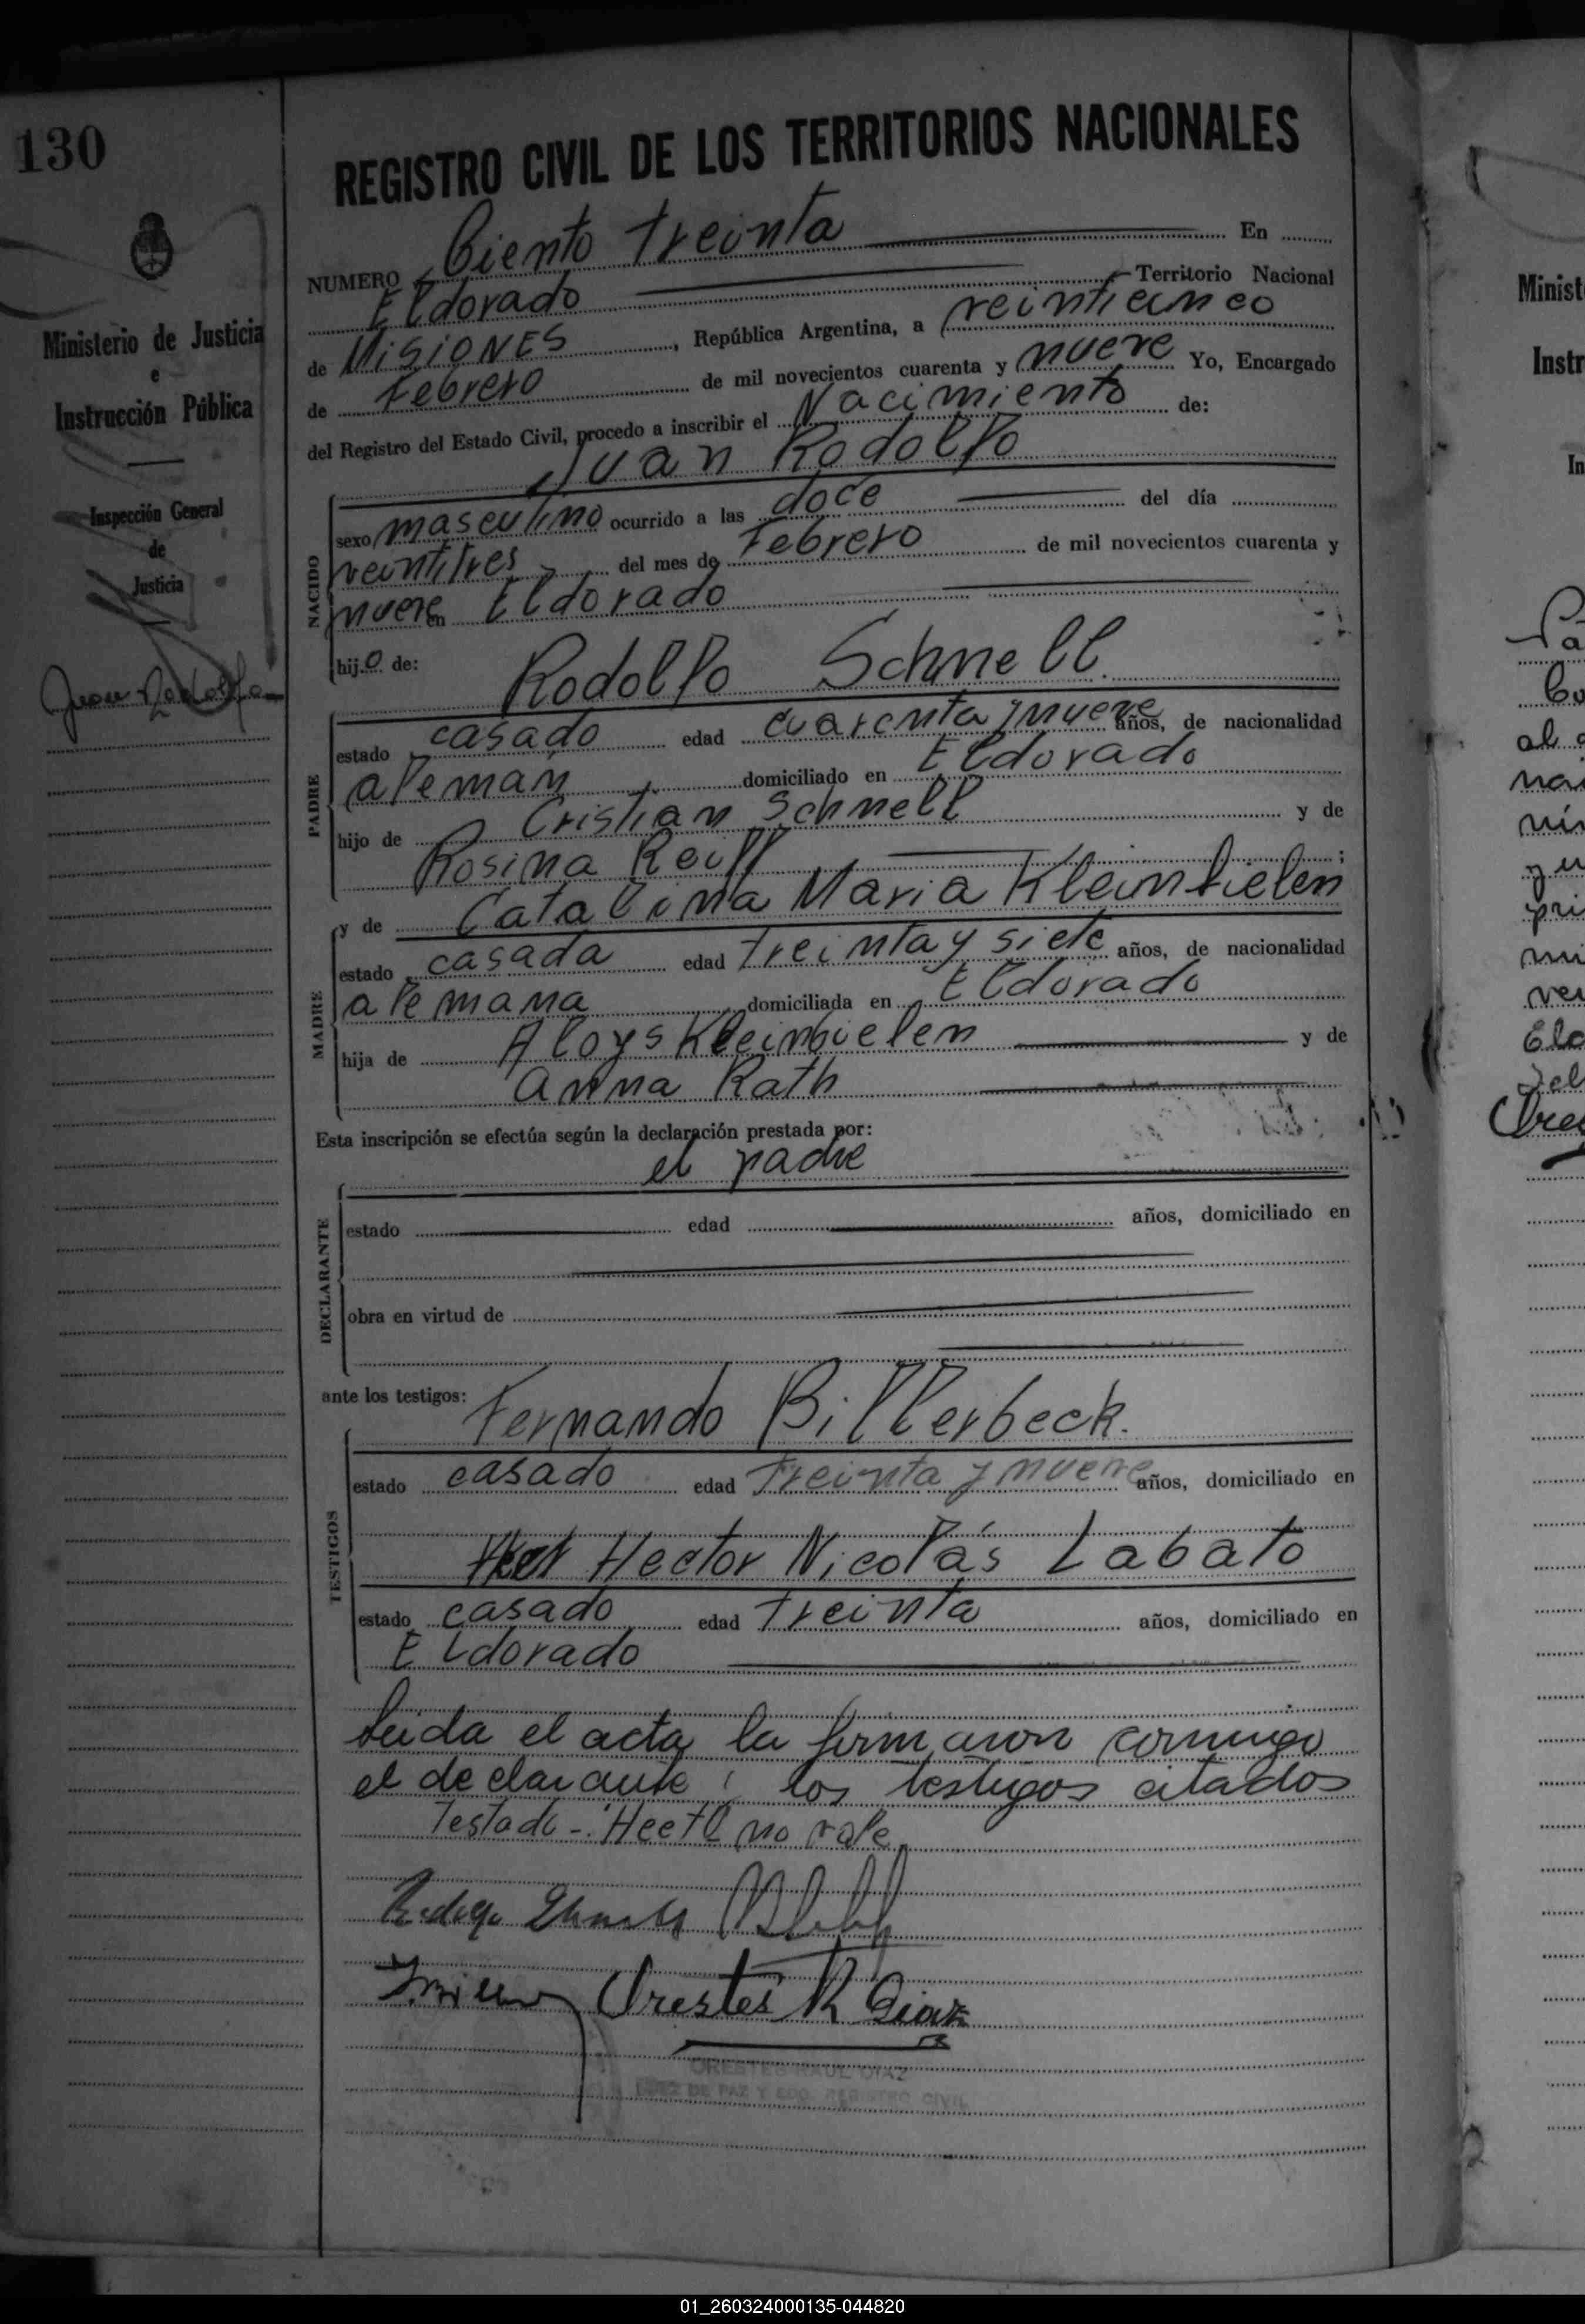 130
REGISTRO CIVIL DE LOS TERRITORIOS NACIONALES
NUMERO Ciento treinta En
Eldorado Territorio Nacional
de MISIONES, República Argentina, a veinticinco
de Febrero de mil novecientos cuarenta y nueve Yo, Encargado
del Registro del Estado Civil, procedo a inscribir el Nacimiento de:
Juan Rodolfo
Ministerio de Justicia
e
Instrucción Pública
Inspección General
de
Justicia
Juan Rodolfo
NACIDO
sexo masculino ocurrido a las doce del día
veintitres del mes de Febrero de mil novecientos cuarenta y
nueve en Eldorado
hijo de: Rodolfo Schnell.
PADRE
estado casado edad cuarenta y nueve años, de nacionalidad
alemán domiciliado en Eldorado
hijo de Cristian Schnell y de
Rosina Reiff ;
y de Catalina Maria Kleinbielen
MADRE
estado casada edad treinta y siete años, de nacionalidad
alemana domiciliada en Eldorado
hija de Aloys Kleinbielen y de
Anna Rath
Esta inscripción se efectúa según la declaración prestada por:
el padre
DECLARANTE
estado edad años, domiciliado en
obra en virtud de
ante los testigos: Fernando Billerbeck.
TESTIGOS
estado casado edad treinta y nueve años, domiciliado en
Hector Nicolás Labato
estado casado edad treinta años, domiciliado en
Eldorado
Leida el acta la firmaron conmigo
el declarante i los testigos citados
Testado-: Hect no vale
Orestes R Diaz
ORESTES RAUL DIAZ
JUEZ DE PAZ Y EDO. REGISTRO CIVIL
Minist
Instr
In
01_260324000135-044820